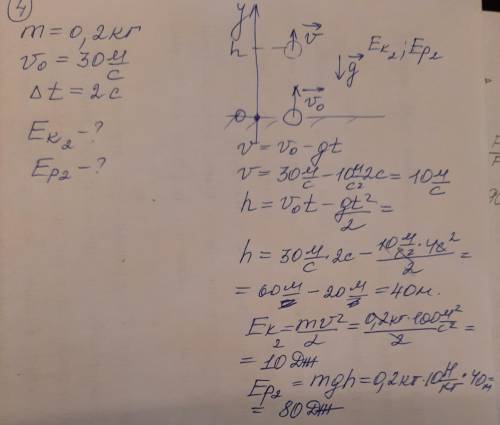 4
m = 0,2кг
v₀ = 30 м/с
Δt = 2с
Eк₂ - ?
Ep₂ - ?
y
h
v⃗
Eк₂; Ep₂
g⃗
0
v⃗₀
v = v₀ - gt
v = 30 м/с - 10 м/с² 2с = 10 м/с
h = v₀t - gt²/2 =
h = 30 м/с · 2с - 10 м/с² · 4с²/2 =
= 60 м - 20 м = 40м.
Eк₂ = mv²/2 = 0,2кг·100 м²/с²/2 =
= 10 Дж
Ep₂ = mgh = 0,2кг·10 Н/кг · 40м =
= 80 Дж